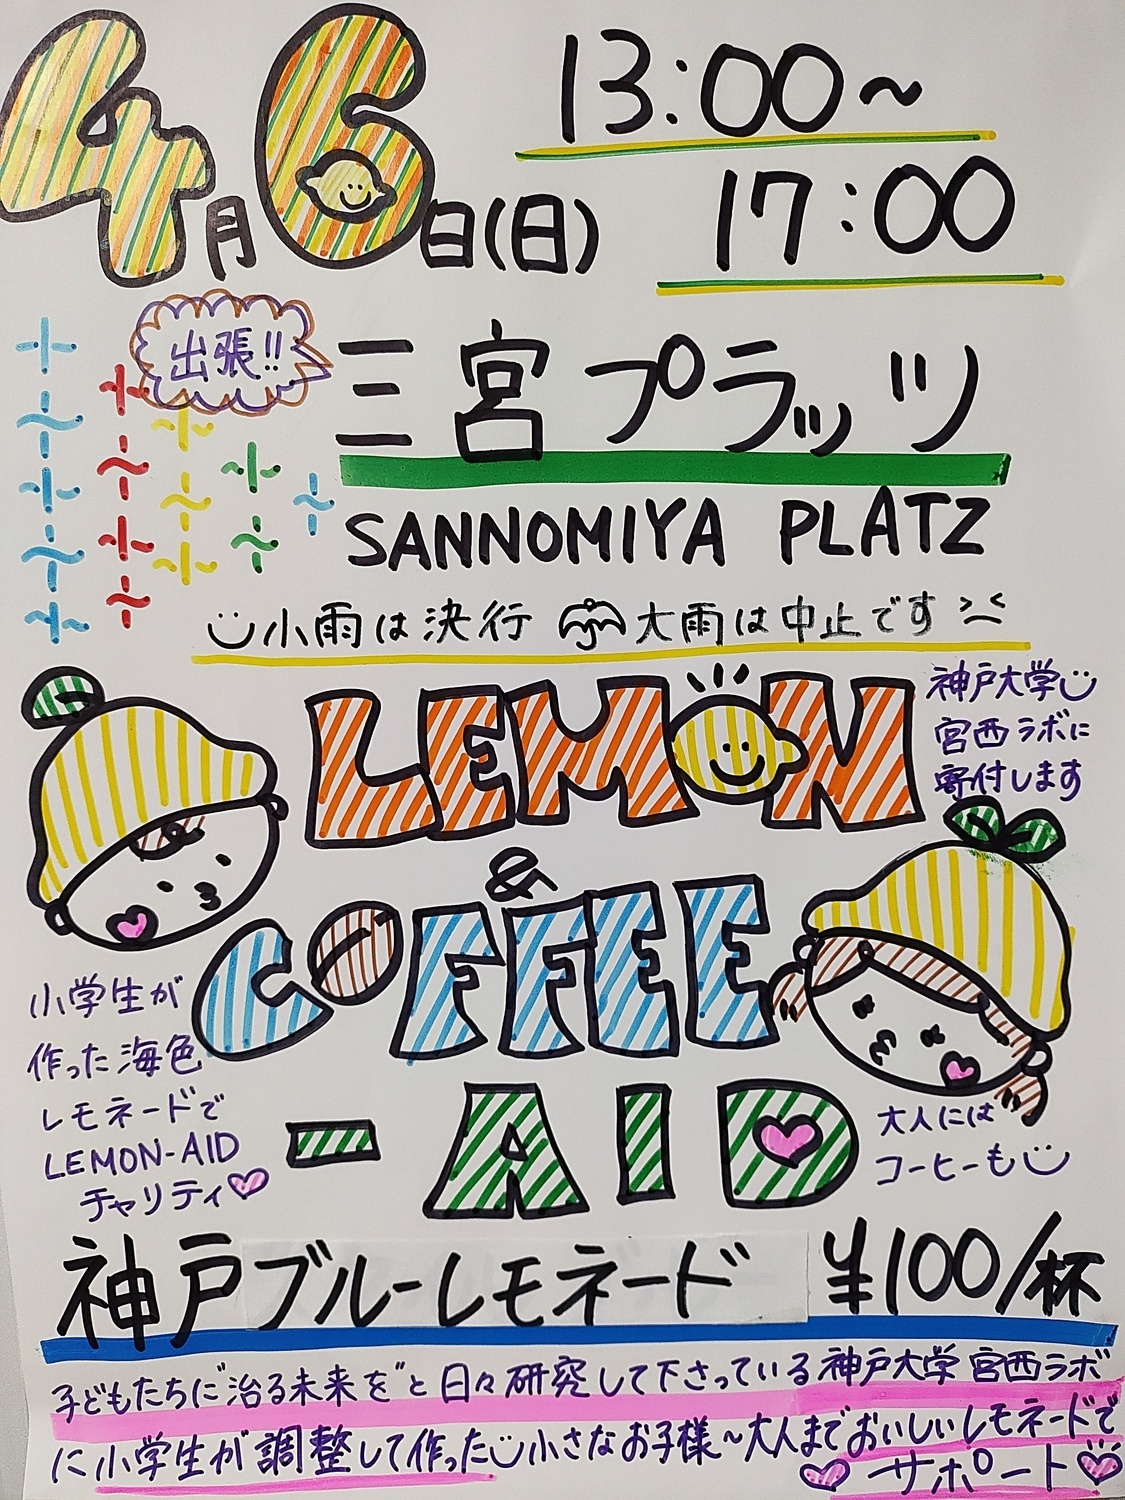 4月6日(日) 13:00~
17:00
出張!!
三宮プラッツ
SANNOMIYA PLATZ
小雨は決行 大雨は中止です
神戸大学
宮西ラボに
寄付します
LEMON
&
COFFEE
-AID
小学生が
作った海色
レモネードで
LEMON-AID
チャリティ
大人には
コーヒーも
神戸ブルーレモネード ¥100/杯
子どもたちに"治る未来を"と日々研究して下さっている神戸大学宮西ラボ
に小学生が調整して作った小さなお子様~大人までおいしいレモネードで
サポート